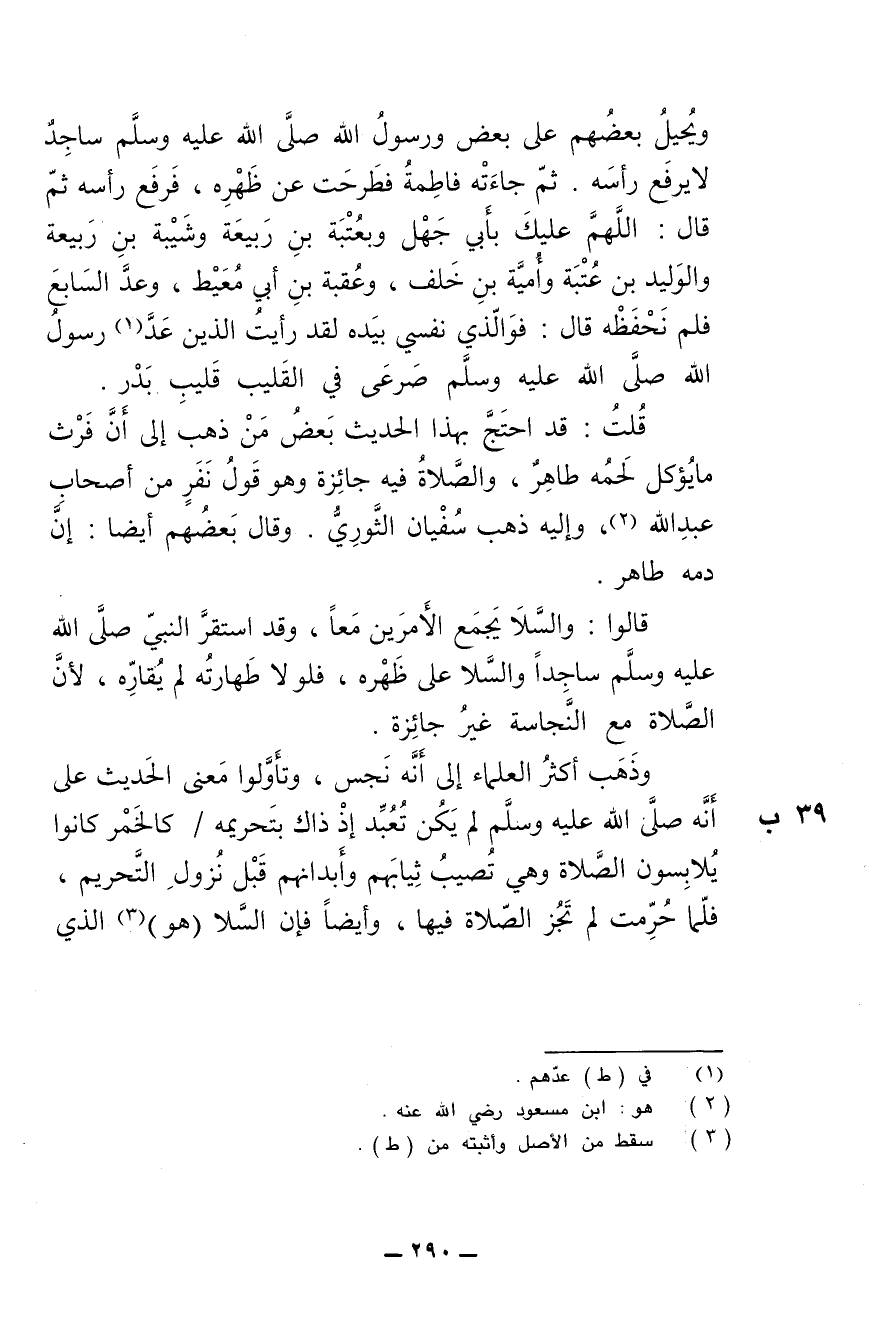 ويُحيلُ بعضُهم على بعض ورسولُ الله صلَّى الله عليه وسلَّم ساجِدٌ
لايرفَع رأسَه . ثمّ جاءَتْه فاطِمةُ فطَرحَت عن ظَهْرِه ، فَرفَع رأسه ثمّ
قال : اللَّهمَّ عليكَ بأَبي جَهْل وبعُتْبَة بنِ رَبيعَة وشَيْبة بنِ رَبيعة
والوَليد بن عُتْبَة وأُميَّة بنِ خَلف ، وعُقبة بنِ أبي مُعَيْط ، وعدَّ السَابعَ
فلم نَحْفَظْه قال : فوَالّذي نفسي بيَده لقد رأيتُ الذين عَدَّ(١) رسولُ
الله صلَّى الله عليه وسلَّم صَرعَى في القَليب قَليبِ بَدْر .
قُلتُ : قد احتَجَّ بهذا الحديث بَعضُ مَنْ ذهب إلى أَنَّ فَرْث
مايُؤكل لَحمُه طاهِرٌ ، والصَّلاةُ فيه جائِزة وهو قَولُ نَفَرٍ من أصحابِ
عبدِالله (٢)، وإليه ذهب سُفْيان الثَّورِيُّ . وقال بَعضُهم أيضا : إنَّ
دمه طاهر .
قالوا : والسَّلَا يَجمَع الأَمرَين مَعاً ، وقد استقرَّ النبيّ صلَّى الله
عليه وسلَّم ساجِداً والسَّلا على ظَهْره ، فلولا طَهارتُه لم يُقارِّه ، لأنَّ
الصَّلاة مع النَّجاسة غيرُ جائِزة .
وذَهَب أكثرُ العلماء إلى أَنَّه نَجس ، وتأَوَّلوا مَعنى الحَديث على
أَنَّه صلَّى الله عليه وسلَّم لم يَكُن تُعُبِّد إذْ ذاك بتَحريمه / كالخَمْر كانوا
٣٩ ب
يُلابِسون الصَّلاة وهي تُصيبُ ثِيابَهم وأَبدانهم قَبْل نُزولِ التَّحريم ،
فلّما حُرِّمت لم تَجُز الصّلاة فيها ، وأيضاً فإن السَّلا (هو)(٣) الذي
(١) في (ط) عدّهم .
(٢) هو : ابن مسعود رضي الله عنه .
(٣) سقط من الأصل وأثبته من (ط) .
— ٢٩٠ —